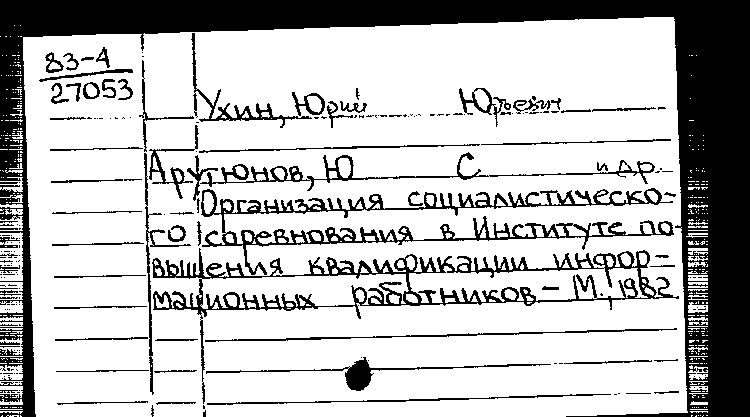 83-4
27053
Ухин, Юрий Юрьевич
Арутюнов, Ю С и др.
Организация социалистическо-
го соревнования в Институте по-
вышения квалификации инфор-
мационных работников - М., 1982